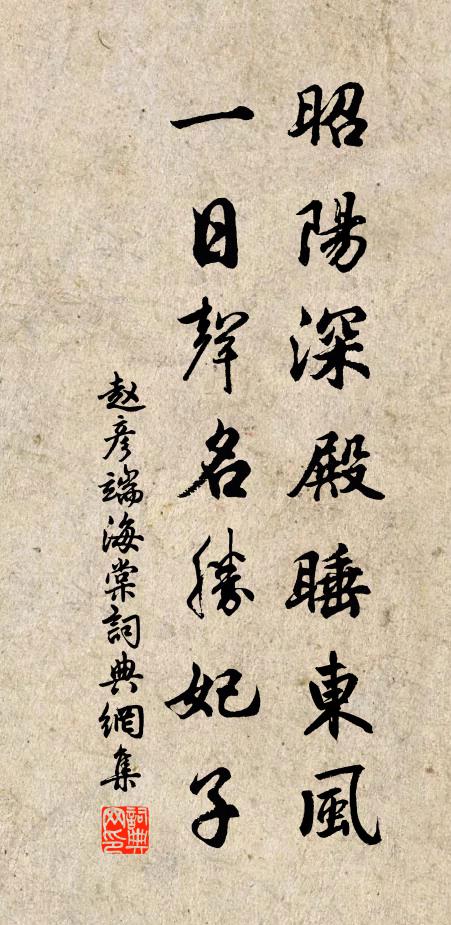 昭陽深殿睡東風
一日聲名勝妃子
赵彦端海棠詞典網集
詞典网印